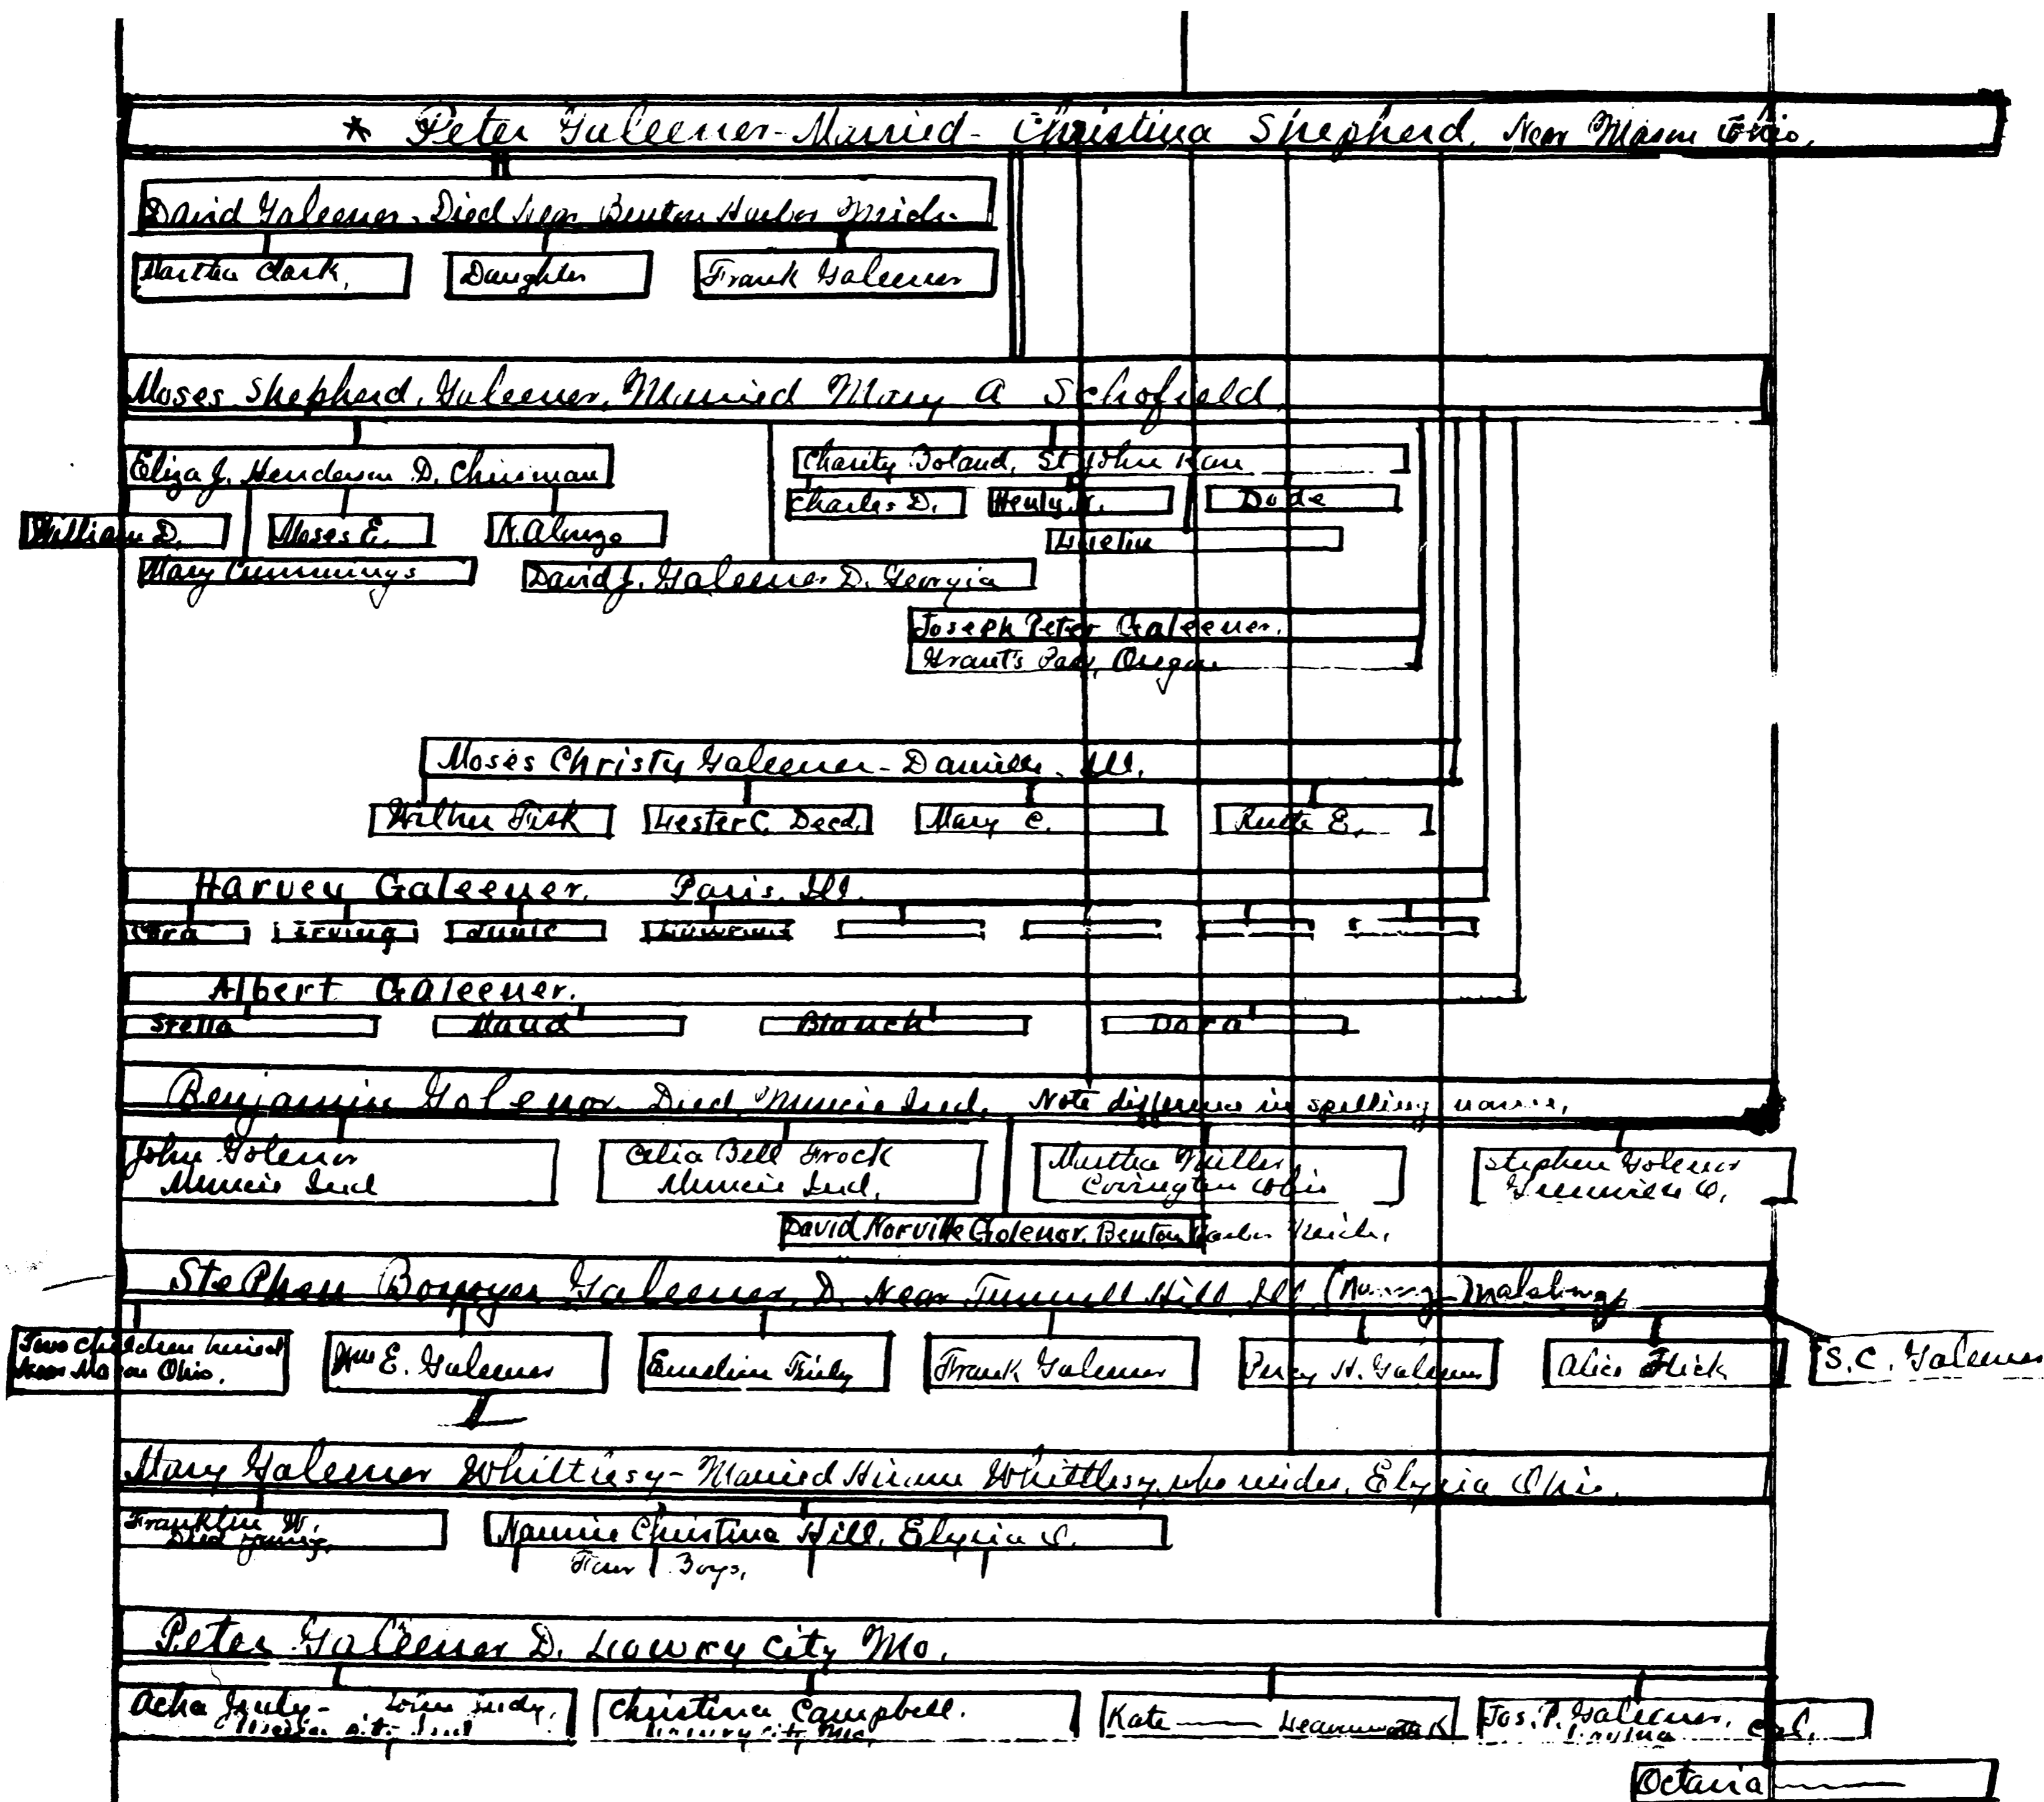 * Peter Galeener - Married - Christina Shepherd. Near Mason Ohio.
David Galeener. Died Near Benton Harbor Mich.
Martha Clark,
Daughter
Frank Galeener
Moses Shepherd. Galeener. Married Mary A Schofield
Eliza J. Henderson D. Chrisman
Charity Boland, St John Kan
Charles D.
Henly
Dode
William D.
Moses E.
N. Alonzo
Mary Cummings
David J. Galeener D. Georgia
Joseph Peter Galeener.
Grant's Pass, Oregon
Moses Christy Galeener - Danville. Ill.
Wilber Fisk
Lester C. Decd.
Mary C.
Ruth E.
Harvey Galeener. Paris. Ill.
Cora
Irving
Albert Galeener.
Stella
Maud
Blanch
Dora
Benjamin Golenor Died, Muncie Ind. Note difference in spelling name.
John Golenor
Muncie Ind
Celia Bell Frock
Muncie Ind.
Martha Miller
Covington Ohio
Stephen Golenor
Greenville O.
David Norville Golenor. Benton Harbor Mich.
Stephen Bowyer Galeener. D. Near Tunnell Hill Ill
Two Children buried
Near Mason Ohio.
Wm E. Galeener
Emeline
Frank Galeener
Percy H. Galeener
Alice Flick
S.C. Galeener
Mary Galeener Whittlesy - Married Hiram Whittlesy who resides. Elyria Ohio.
Franklin W.
Died young.
Nannie Christina Hill. Elyria O.
Four Boys.
Peter Galeener D. Lowry City Mo.
Christina Campbell.
Lowry City Mo
Kate
Jos. P. Galeener.
Cal.
Octavia